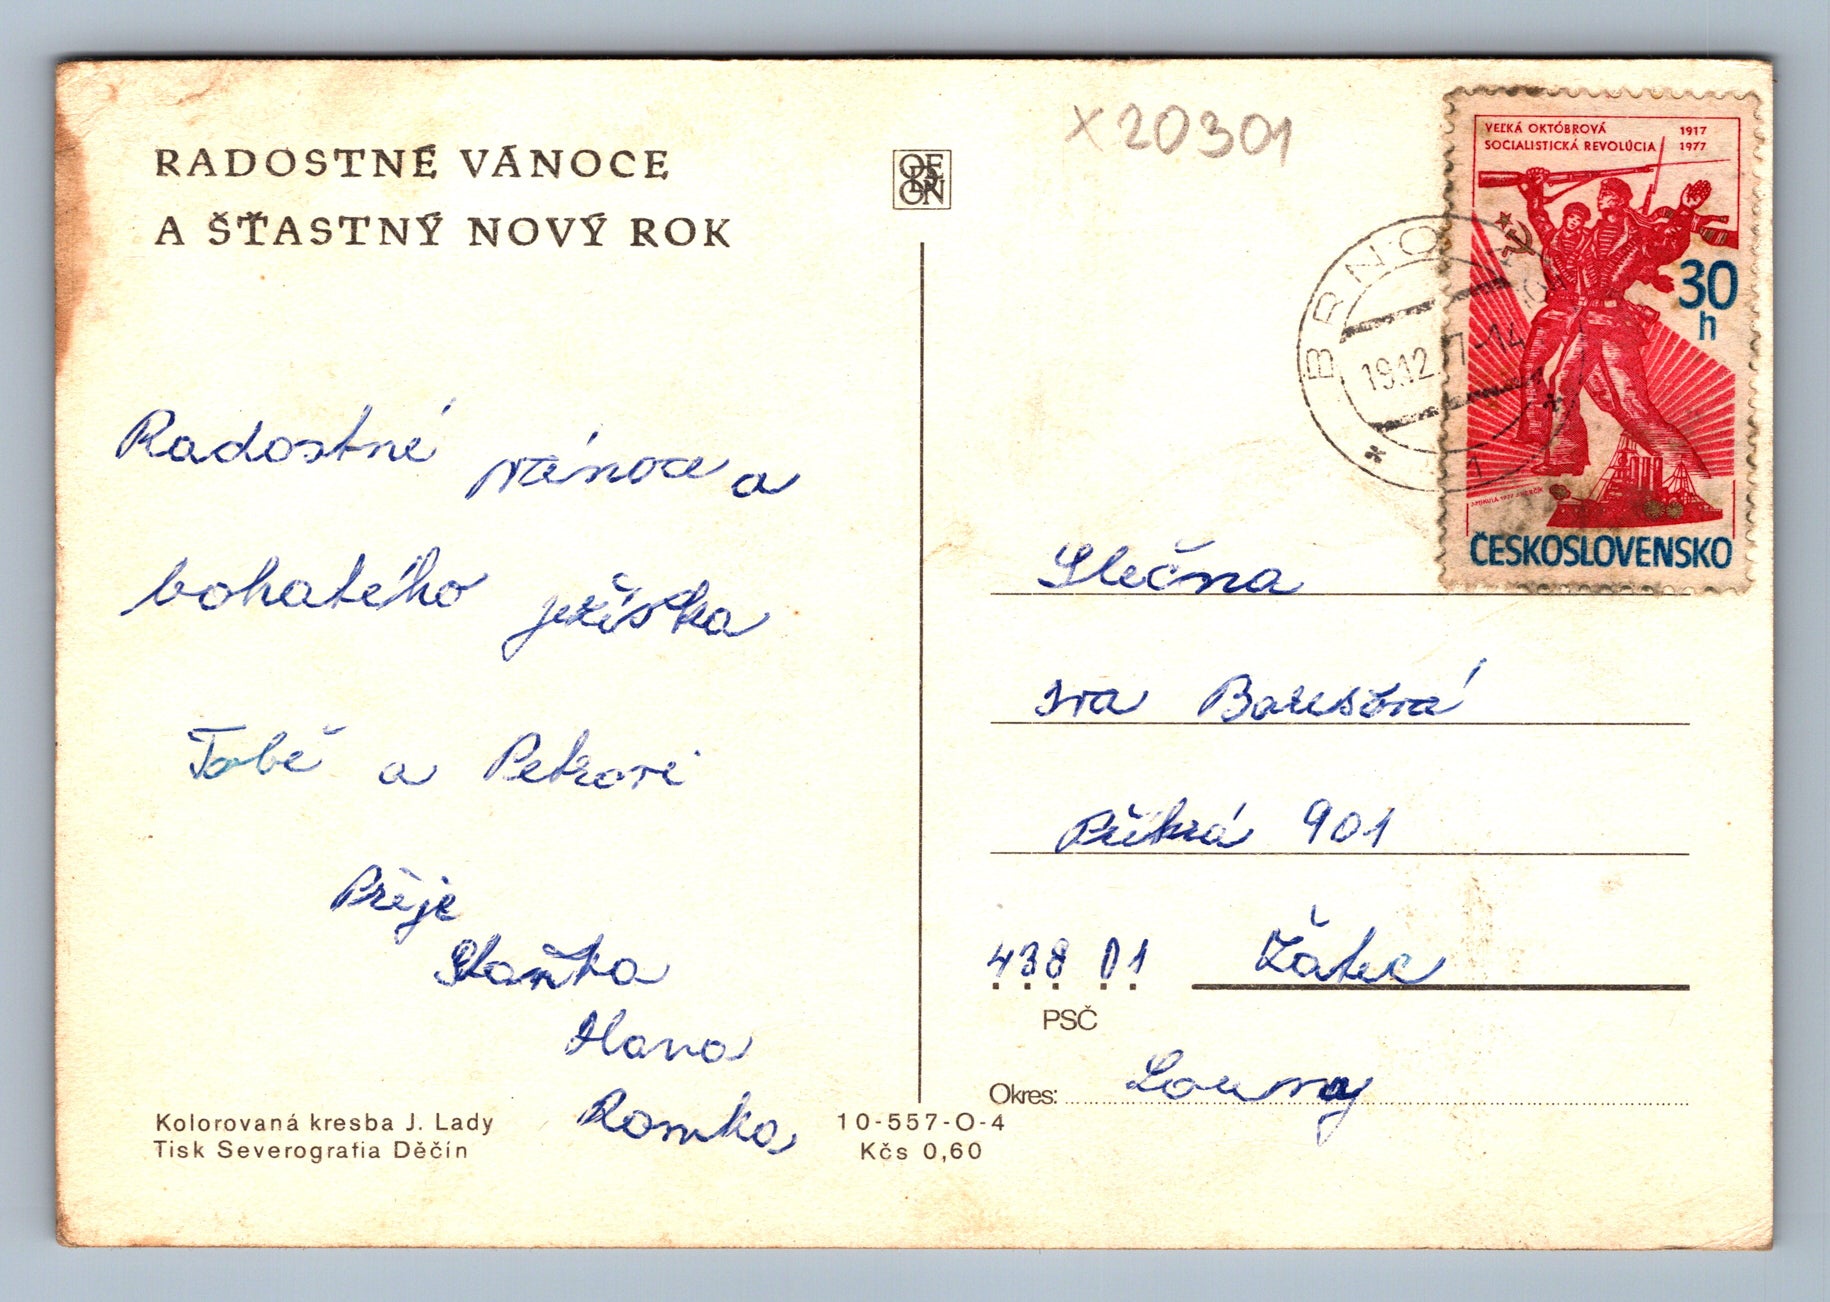 RADOSTNÉ VÁNOCE
A ŠŤASTNÝ NOVÝ ROK
Radostné vánoce a
bohatého ježíška
Tobě a Petrovi
Přeje
Staňka
Hana
Romka
Kolorovaná kresba J. Lady
Tisk Severografia Děčín
10-557-O-4
Kčs 0,60
ODEON
x 20301
VEĽKÁ OKTÓBROVÁ 1917
SOCIALISTICKÁ REVOLÚCIA 1977
30
h
ČESKOSLOVENSKO
BRNO
19.12. 7-14
1
Slečna
Iva
Příkrá 901
438 01 Žatec
PSČ
Okres: Louny